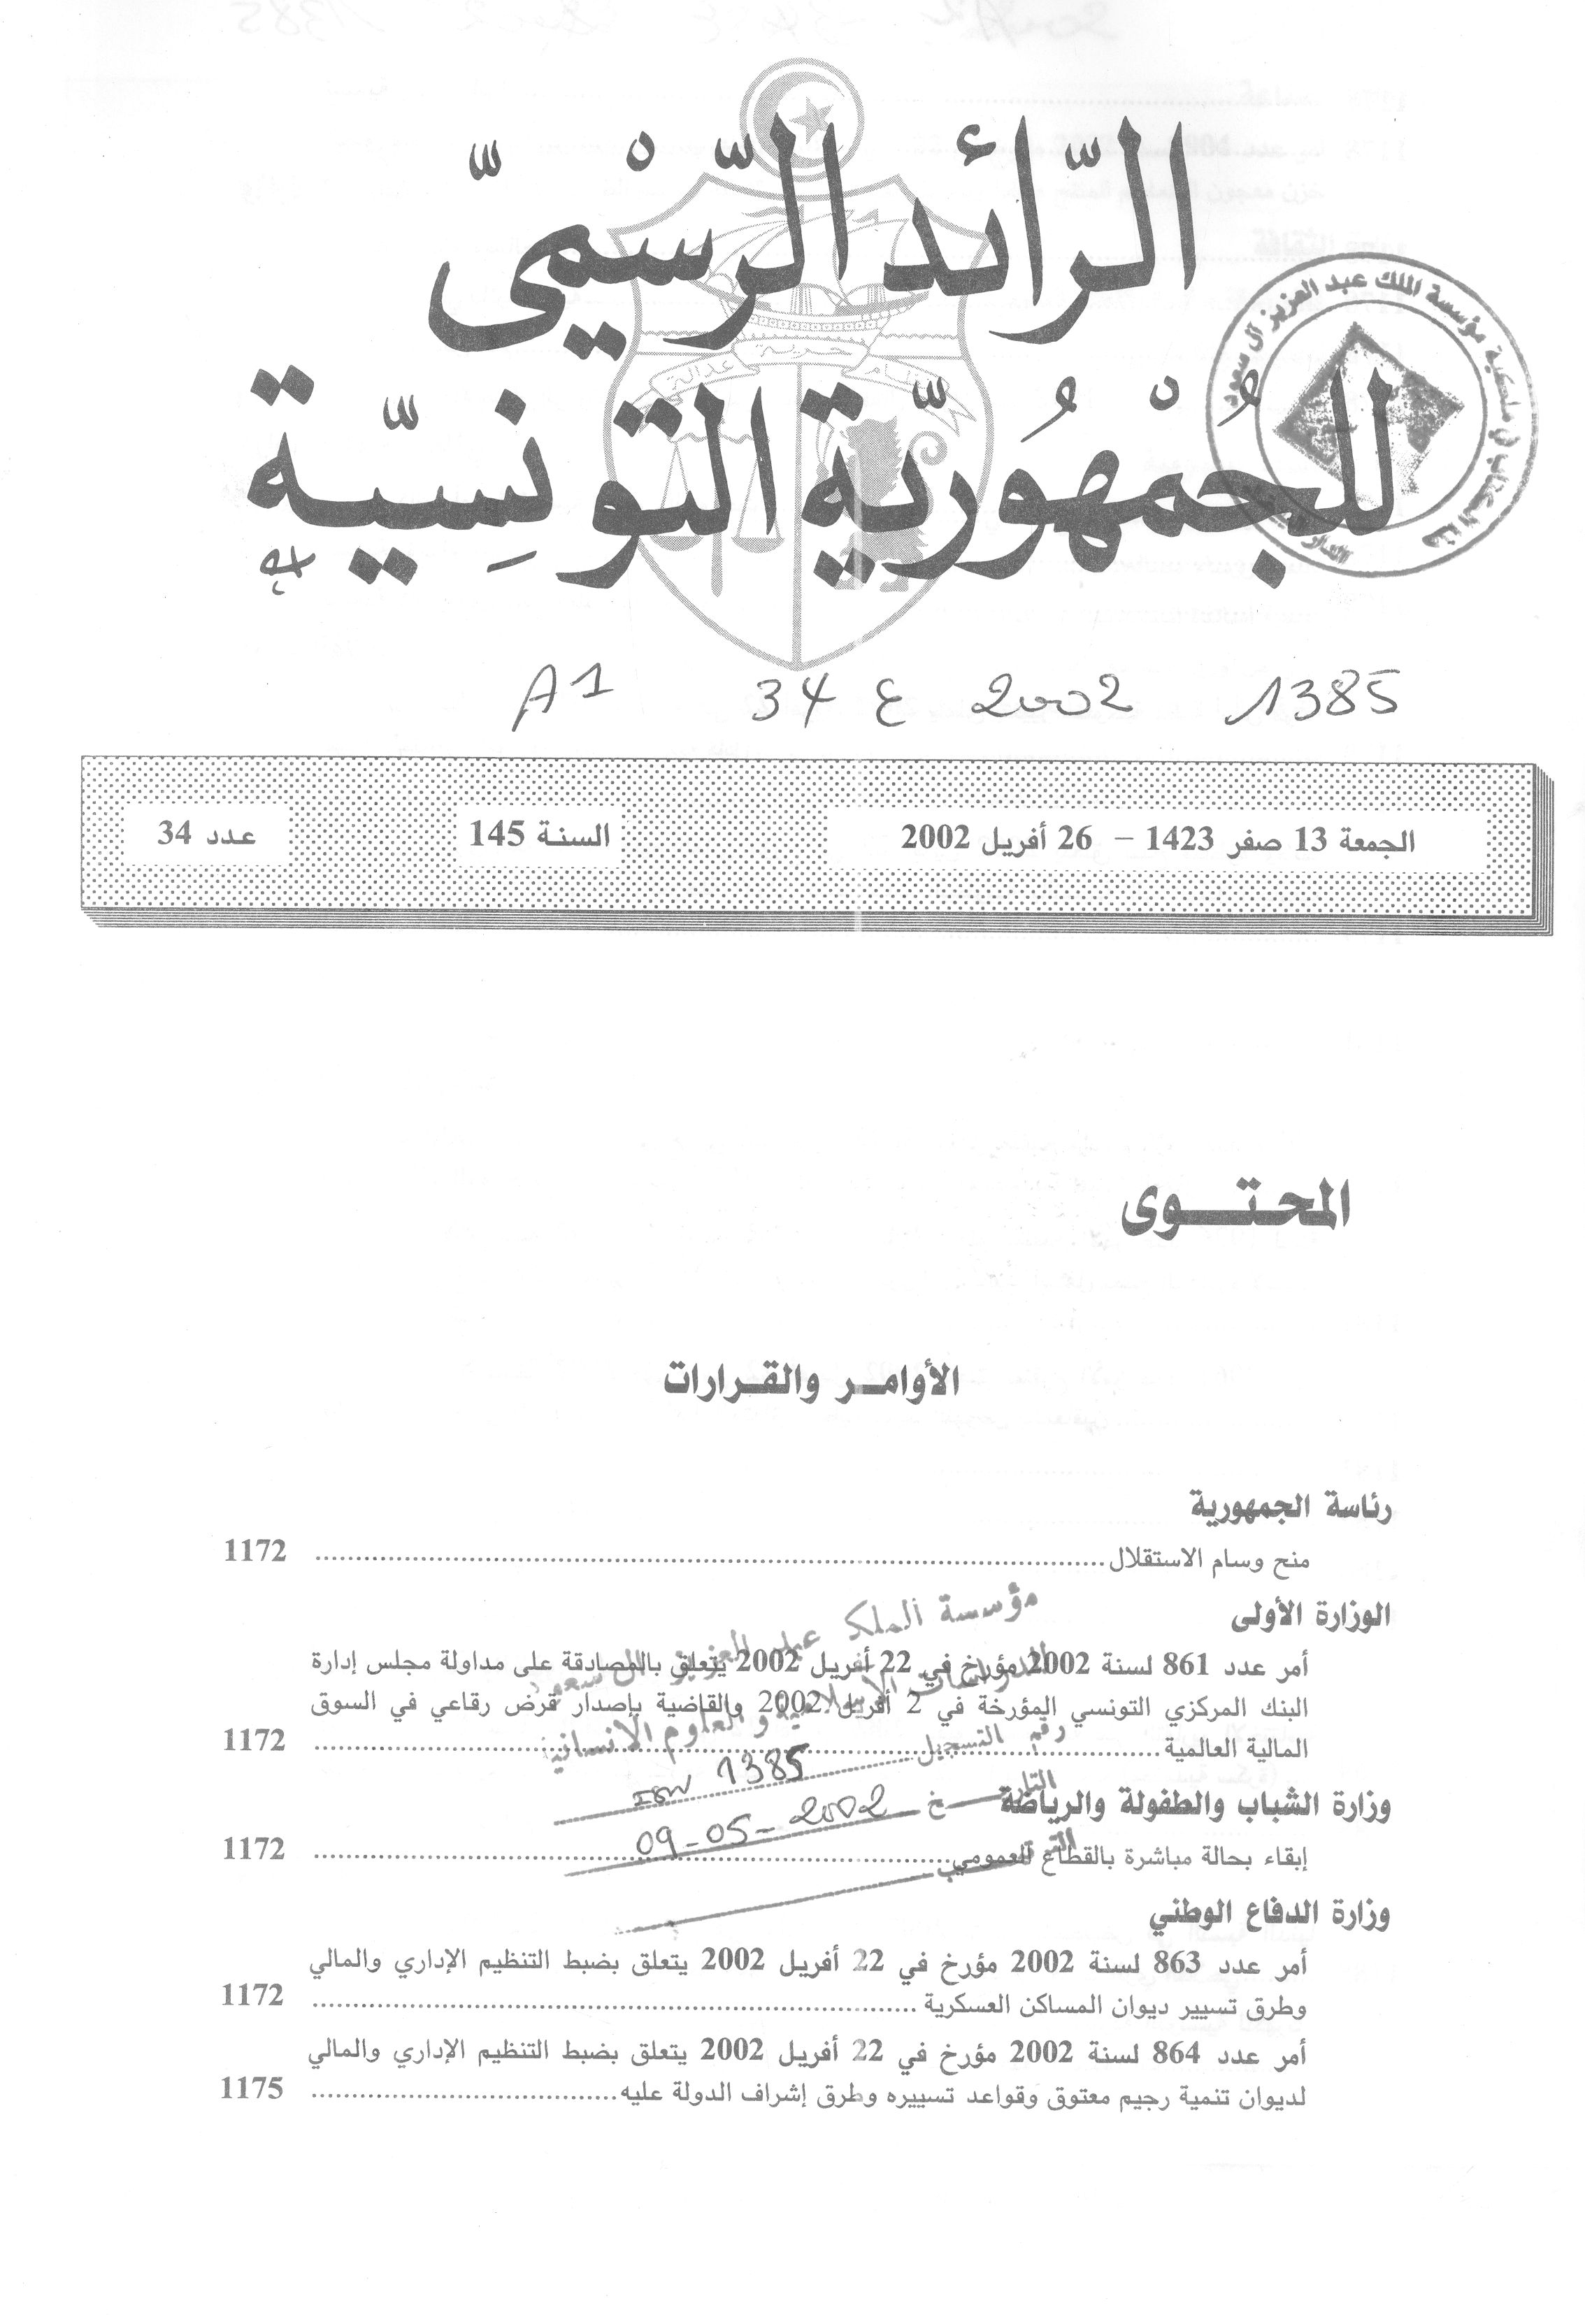 الرّائد الرّسْميّ
للجُمْهُوريّة التونِسيّة
حرية
نظام
عدالة
مؤسسة الملك عبد العزيز آل سعود
A1 34 ع 2002 1385
الجمعة 13 صفر 1423 – 26 أفريل 2002
السنة 145
عدد 34
المحتوى
الأوامر والقرارات
رئاسة الجمهورية
منح وسام الاستقلال 1172
الوزارة الأولى
أمر عدد 861 لسنة 2002 مؤرخ في 22 أفريل 2002 يتعلق بالمصادقة على مداولة مجلس إدارة
البنك المركزي التونسي المؤرخة في 2 أفريل 2002 والقاضية بإصدار قرض رقاعي في السوق
المالية العالمية 1172
وزارة الشباب والطفولة والرياضة
إبقاء بحالة مباشرة بالقطاع العمومي 1172
وزارة الدفاع الوطني
أمر عدد 863 لسنة 2002 مؤرخ في 22 أفريل 2002 يتعلق بضبط التنظيم الإداري والمالي
وطرق تسيير ديوان المساكن العسكرية 1172
أمر عدد 864 لسنة 2002 مؤرخ في 22 أفريل 2002 يتعلق بضبط التنظيم الإداري والمالي
لديوان تنمية رجيم معتوق وقواعد تسييره وطرق إشراف الدولة عليه 1175
مؤسسة الملك عبد العزيز آل سعود
للدراسات الإسلامية و العلوم الانسانية
رقم التسجيل 1385
التاريخ 09-05-2002